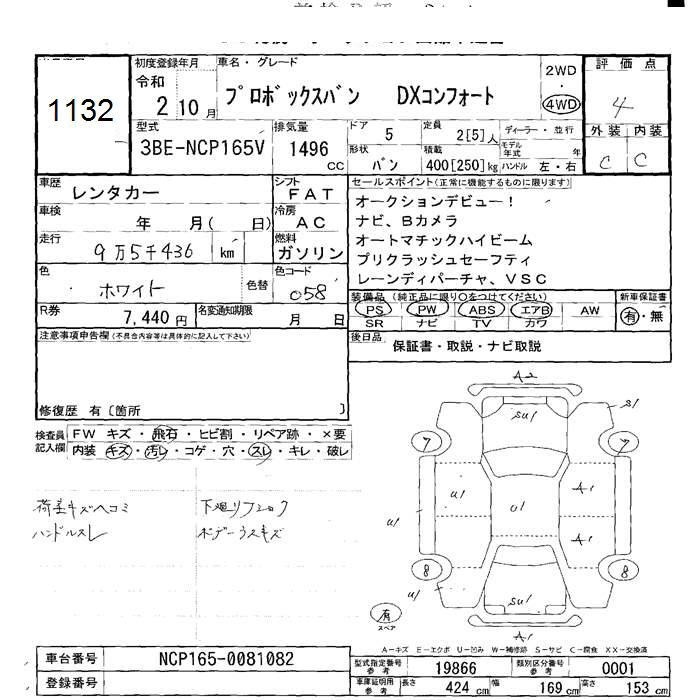 初度登録年月 車名・グレード 評価点
1132 令和 2 10月 プロボックスバン DXコンフォート 2WD 4WD 4
型式 排気量 ドア 5 定員 2[5]人 ディーラー・並行 外装 内装
3BE-NCP165V 1496 CC 形状 バン 積載 400[250]kg モデル年式 年 ハンドル 左・右 C C
車歴 レンタカー シフト FAT セールスポイント(正常に機能するものに限ります)
車検 年 月( 日) 冷房 AC オークションデビュー!
ナビ、Bカメラ
走行 9万5千436 km 燃料 ガソリン オートマチックハイビーム
プリクラッシュセーフティ
色 ホワイト 色替 色コード 058 レーンディパーチャ、VSC
R券 7,440円 名変通知期限 月 日 装備品(純正品に限り○をつけてください) 新車保証書
PS PW ABS エアB AW 有・無
SR ナビ TV カワ
注意事項申告欄(不具合内容等は具体的に記入して下さい) 後日品 保証書・取説・ナビ取説
修復歴 有〔箇所 〕
検査員記入欄 FW キズ・飛石・ヒビ割・リペア跡・×要
内装 キズ・汚レ・コゲ・穴・スレ・キレ・破レ
荷室キズヘコミ
ハンドルスレ ボデーうスキズ
A2
SU1 S1
7 7
U1 U1 A1
U1 A1
8 8
U1 SU1
有
スペア A1
A-キズ E-エクボ U-凹み W-補修跡 S-サビ C-腐食 XX-交換済
車台番号 NCP165-0081082 型式指定番号 参考 19866 類別区分番号 参考 0001
登録番号 車庫証明用 参考 長さ 424 cm 幅 169 cm 高さ 153 cm